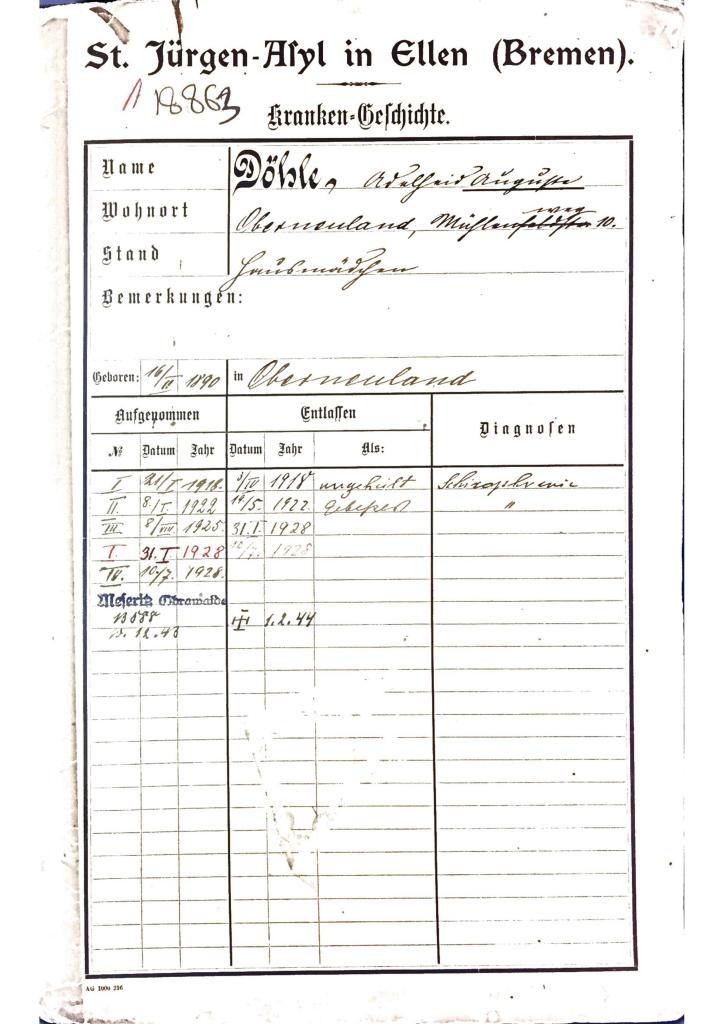 St. Jürgen-Asyl in Ellen (Bremen).
18863
Kranken-Geschichte.
Name Döhle, Adelheid Auguste
Wohnort Oberneuland, Mühlenfeldstr. weg 10.
Stand Hausmädchen
Bemerkungen:
Geboren: 16/II 1890 in Oberneuland
Aufgenommen Entlassen Diagnosen
№ Datum Jahr Datum Jahr Als:
I. 21/I 1918. 3/IV 1918 ungeheilt Schizophrenie
II. 8./I. 1922 19./5. 1922 gebessert "
III. 8/VIII 1925. 31.I. 1928
I. 31.I. 1928 12/7. 1928
IV. 10/7. 1928.
Meseritz Obrawalde
13588
12.43 1.2.44
AG 1000 216